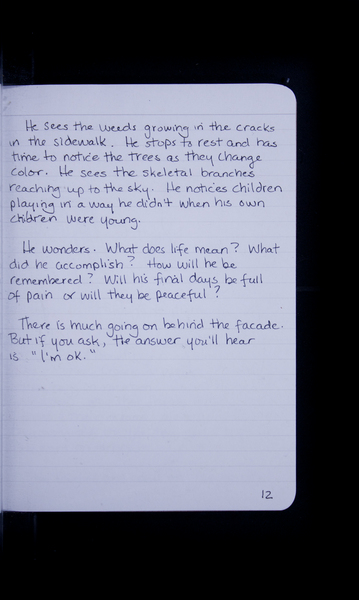 He sees the weeds growing in the cracks
in the sidewalk. He stops to rest and has
time to notice the trees as they change
color. He sees the skeletal branches
reaching up to the sky. He notices children
playing in a way he didn't when his own
children were young.
He wonders. What does life mean? What
did he accomplish? How will he be
remembered? Will his final days be full
of pain or will they be peaceful?
There is much going on behind the facade.
But if you ask, the answer you'll hear
is "I'm ok."
12